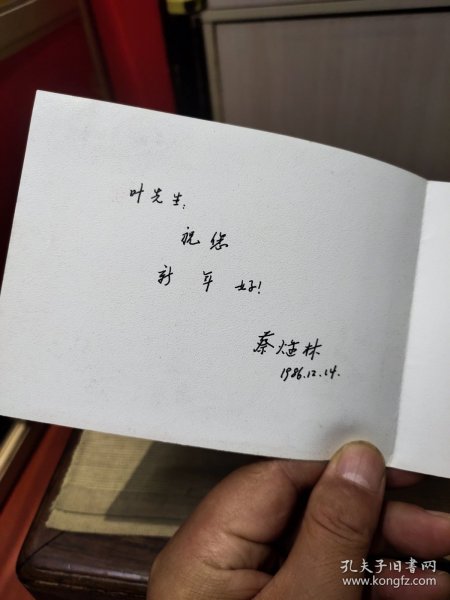 叶先生:
祝您
新年好!
蔡林
1986.12.14.
孔夫子旧书网
www.kongfz.com